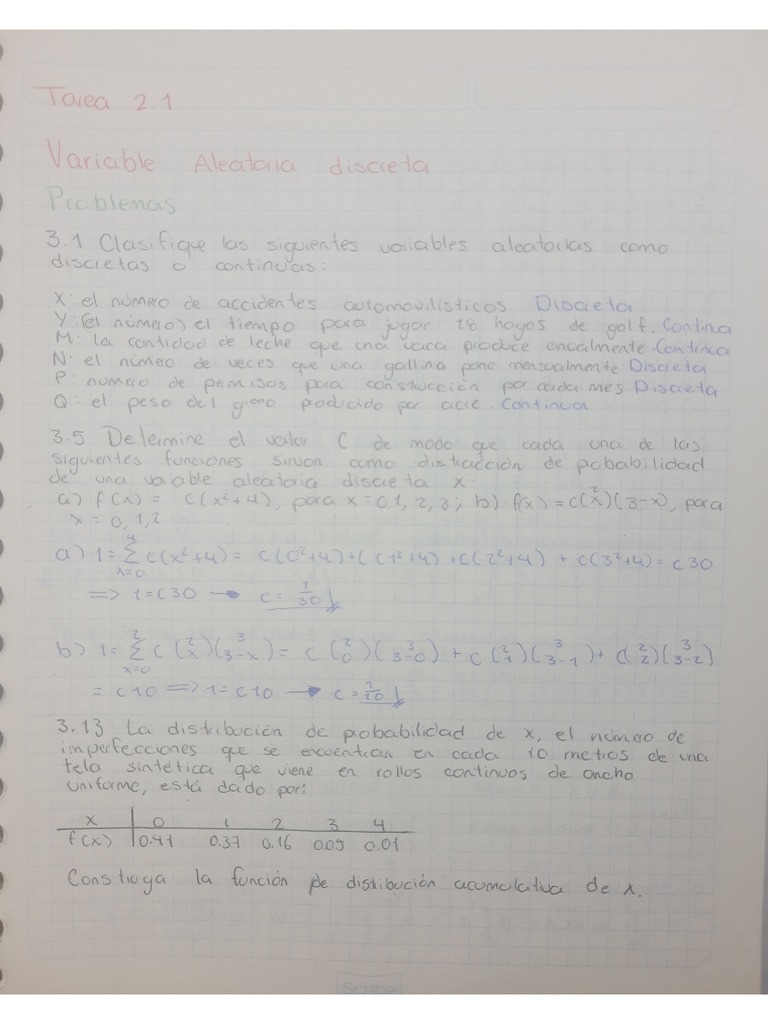 Tarea 2.1
Variable Aleatoria discreta
Problemas
3.1 Clasifique las siguientes variables aleatorias como
discretas o continuas:
X: el número de accidentes automovilísticos Discreta
Y: (el número) el tiempo para jugar 18 hoyos de golf. Continua
M: la cantidad de leche que una vaca produce anualmente Continua
N: el número de veces que una gallina pone mensualmente Discreta
P: numero de permisos para construcción por cada mes Discreta
Q: el peso del grano producido por acre. Continua
3.5 Determine el valor C de modo que cada una de las
siguientes funciones sirvan como distribución de probabilidad
de una variable aleatoria discreta x
a) f(x) = c(x²+4), para x = 0,1,2,3; b) f(x) = c(²x)(3-x), para
x = 0,1,2
a) 1 = 4Σx=0 c(x²+4) = c(0²+4)+c(1²+4)+c(2²+4) + c(3²+4) = c30
=> 1 = c30 → c = 1/30
b) 1 = 2Σx=0 c(²x)(³3-x) = c(²0)(³3-0) + c(²1)(³3-1) + c(²2)(³3-2)
= c10 => 1 = c10 → c = 1/10
3.13 La distribución de probabilidad de x, el número de
imperfecciones que se encuentran en cada 10 metros de una
tela sintética que viene en rollos continuos de ancho
uniforme, está dado por:
x 0 1 2 3 4
f(x) 0.41 0.37 0.16 0.05 0.01
Construya la función de distribución acumulativa de x.
Scribe